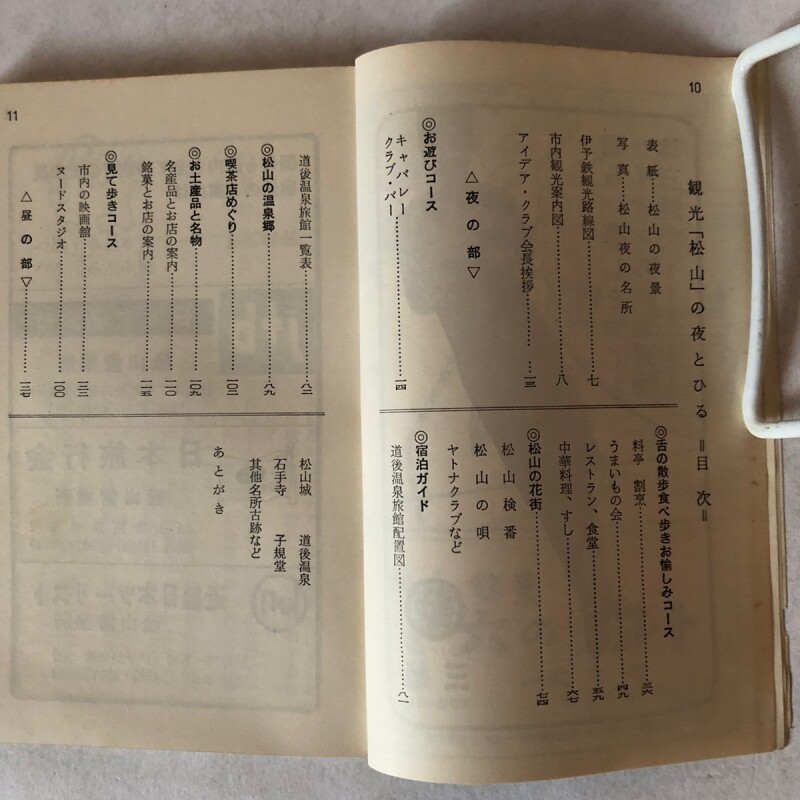 10
観光「松山」の夜とひる =目次=
表紙……松山の夜景
写真……松山夜の名所
伊予鉄観光路線図……七
市内観光案内図……八
アイデア・クラブ会長挨拶……一三
△夜の部▽
◎お遊びコース
キャバレー
クラブ・バー……一四
◎舌の散歩食べ歩きお愉しみコース
料亭 割烹……三六
うまいもの会……四九
レストラン、食堂……五九
中華料理、すし……六七
◎松山の花街……七四
松山検番
松山の唄
ヤトナクラブなど
◎宿泊ガイド
道後温泉旅館配置図……八一
11
道後温泉旅館一覧表……八二
◎松山の温泉郷……八九
◎喫茶店めぐり……一〇二
◎お土産品と名物……一〇九
名産品とお店の案内……一一〇
銘菓とお店の案内……一一五
◎見て歩きコース
市内の映画館……一三三
ヌードスタジオ……一〇〇
△昼の部▽……一二七
松山城 道後温泉
石手寺 子規堂
其他名所古跡など
あとがき